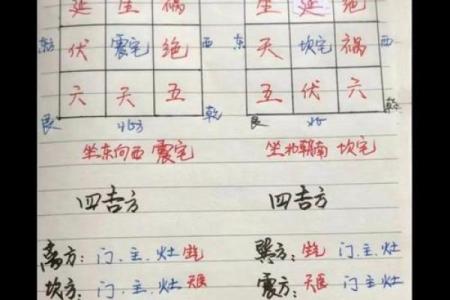 延 生 祸 生 延 绝
东 伏 震宅 绝 西 东 天 坎宅 祸 西
六 天 五 五 伏 六
艮 北方 乾 艮 北 乾
坐东向西 震宅 坐北朝南 坎宅
四吉方 四吉方
离方：门、主、灶 生 巽方：生 门、主、灶
坎方：门、主、灶 天医 震方：天医 门、主、灶